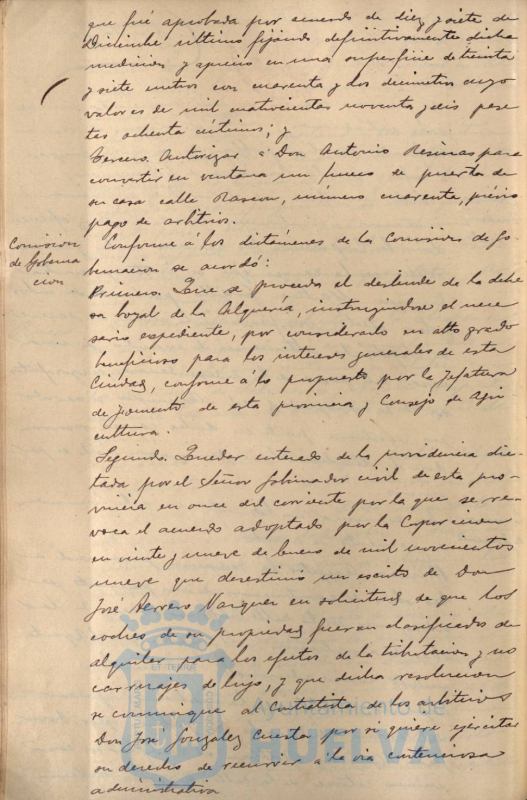 que fué aprobada por acuerdo de diez y siete de
Diciembre último fijando definitivamente dicha
medicion y aprecio en una superficie de treinta
y siete metros con cuarenta y dos decimetros cuyo
valor es de mil cuatrocientas noventa y seis pese
tas ochenta céntimos; y
Tercero. Autorizar á Don Antonio Resinas para
convertir en ventana un hueco de puerta de
su casa calle Rascon, número cuarenta, prévio
pago de arbitrios.
Comision
de Goberna
cion
Conforme á los dictámenes de la Comision de Go
bernacion se acordó:
Primero. Que se proceda al deslinde de la dehe
sa boyal de la Alquería, instruyéndose el nece
sario expediente, por considerarlo en alto grado
beneficioso para los intereses generales de esta
Ciudad, conforme á lo propuesto por la Jefatura
de fomento de esta provincia y Consejo de Agri
cultura.
Segundo. Quedar enterado de la providencia dic-
tada por el Señor Gobernador civil de esta pro-
vincia en once del corriente por la que se re-
voca el acuerdo adoptado por la Corporacion
en veinte y nueve de Enero de mil novecientos
nueve que desestimó un escrito de Don
José Herrero Vazquez en solicitud de que los
coches de su propiedad fueran clasificados de
alquiler para los efectos de la tributacion y no
carruajes de lujo, y que dicha resolucion
se comunique al Contratista de los arbitrios
Don José Gonzalez Cuesta por si quiere ejercitar
su derecho de recurrir a la via contenciosa
administrativa
Ayuntamiento de
HUELVA